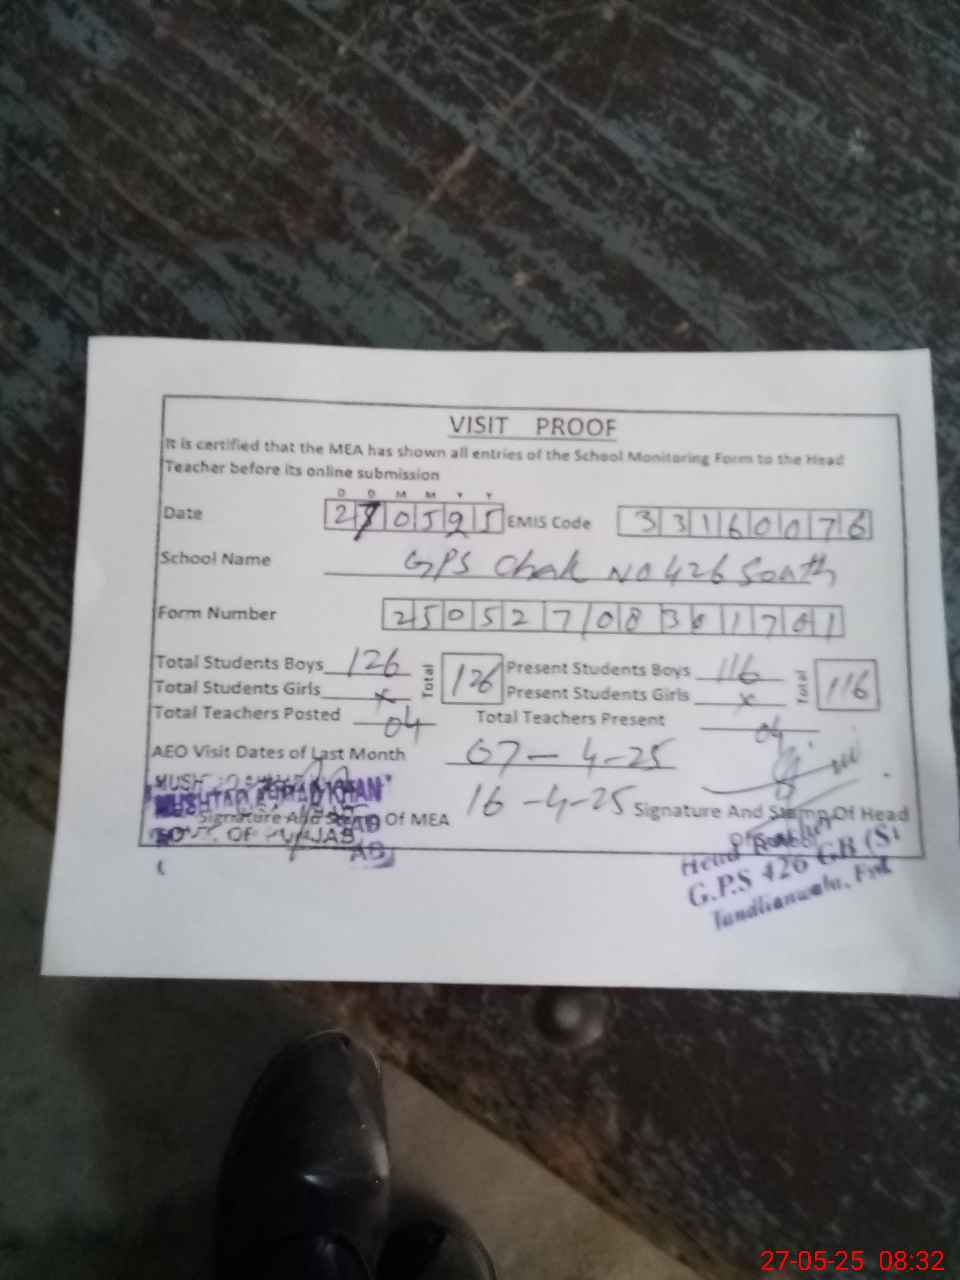 VISIT PROOF
It is certified that the MEA has shown all entries of the School Monitoring Form to the Head
Teacher before its online submission
D D M M Y Y
Date 270525 EMIS Code 33160076
School Name GPS Chak No 426 South
Form Number 2505270836
Total Students Boys 126 Total 126 Present Students Boys 116 Total 116
Total Students Girls x Present Students Girls x
Total Teachers Posted 04 Total Teachers Present 04
AEO Visit Dates of Last Month 07-4-25
16-4-25
MUSHTAQ AHMAD KHAN
Signature And Stamp Of MEA Signature And Stamp Of Head
GOVT. OF PUNJAB
Head Teacher
G.P.S 426 GB (S)
Tandlianwala, Fsd
27-05-25 08:32